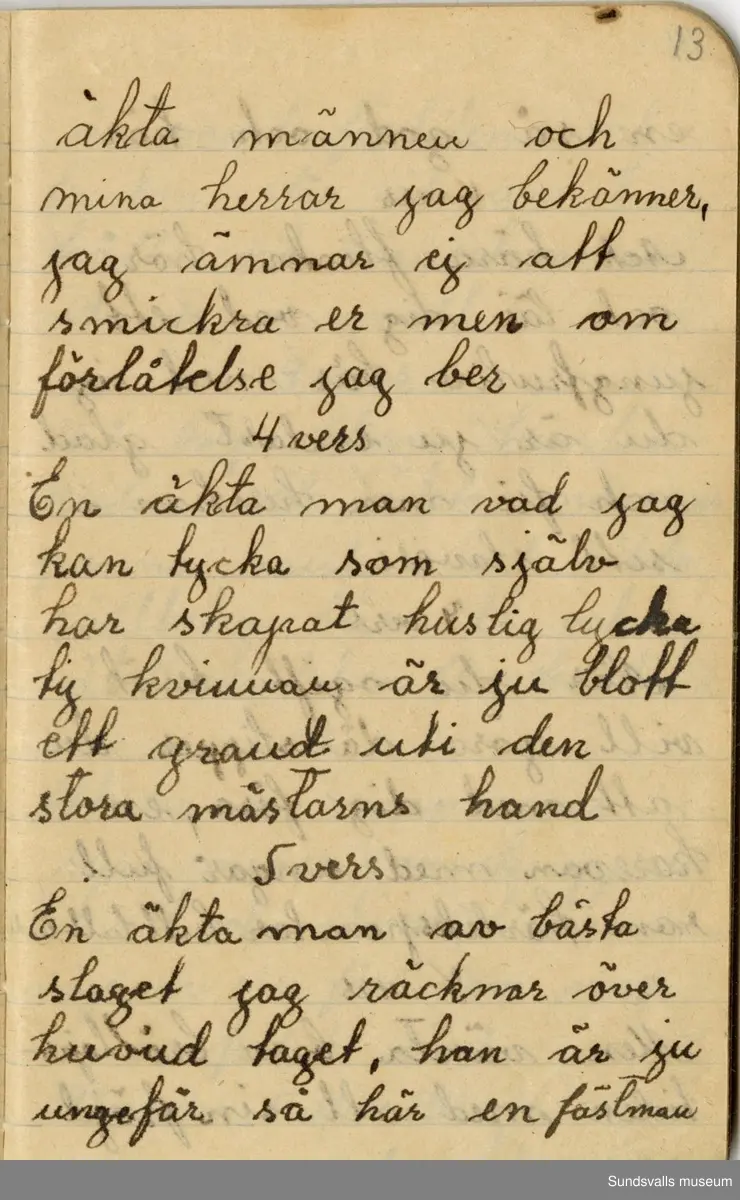 13
äkta männen och
mina herrar jag bekänner,
jag ämnar ej att
smickra er men om
förlåtelse jag ber
4 vers
En äkta man vad jag
kan tycka som själv
har skapat huslig lycka
ty kvinnan är ju blott
ett grandt uti den
stora mästarns hand
5 vers
En äkta man av bästa
slaget jag räcknar över
huvud taget, han är ju
ungefär så här en fästman
Sundsvalls museum